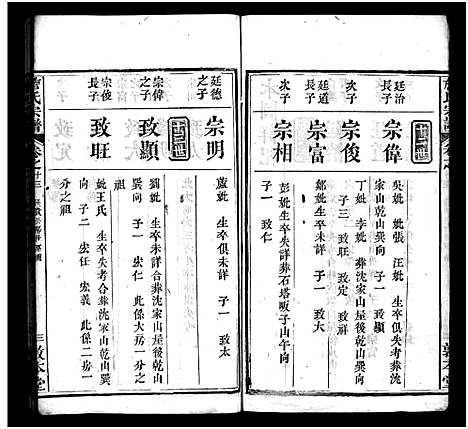 廷治長子
宗偉
吳妣 妣張 汪妣 生卒俱失考葬沈
家山乾山巽向 子一 致顯
廷道長子
宗俊
丁妣 李妣 葬沈家山屋後乾山巽向
子三 致旺 致定 致祥
宗富
鄭妣生卒失詳 子一 致大
次子
宗相
彭妣生卒失詳葬石塔畈子山午向
子一 致仁
廷德之子
宗明
蘆妣 生卒俱未詳 子一 致太
宗偉之子
致顯
劉妣 生卒未詳合葬沈家山屋後乾山
巽向 子一 宏仁 此係大房一分之
祖
宗俊長子
致旺
妣王氏 生卒失考合葬沈家山乾山巽
向 子二 宏任 宏義 此係二房一
分之祖
氏宗譜
三 敦本堂